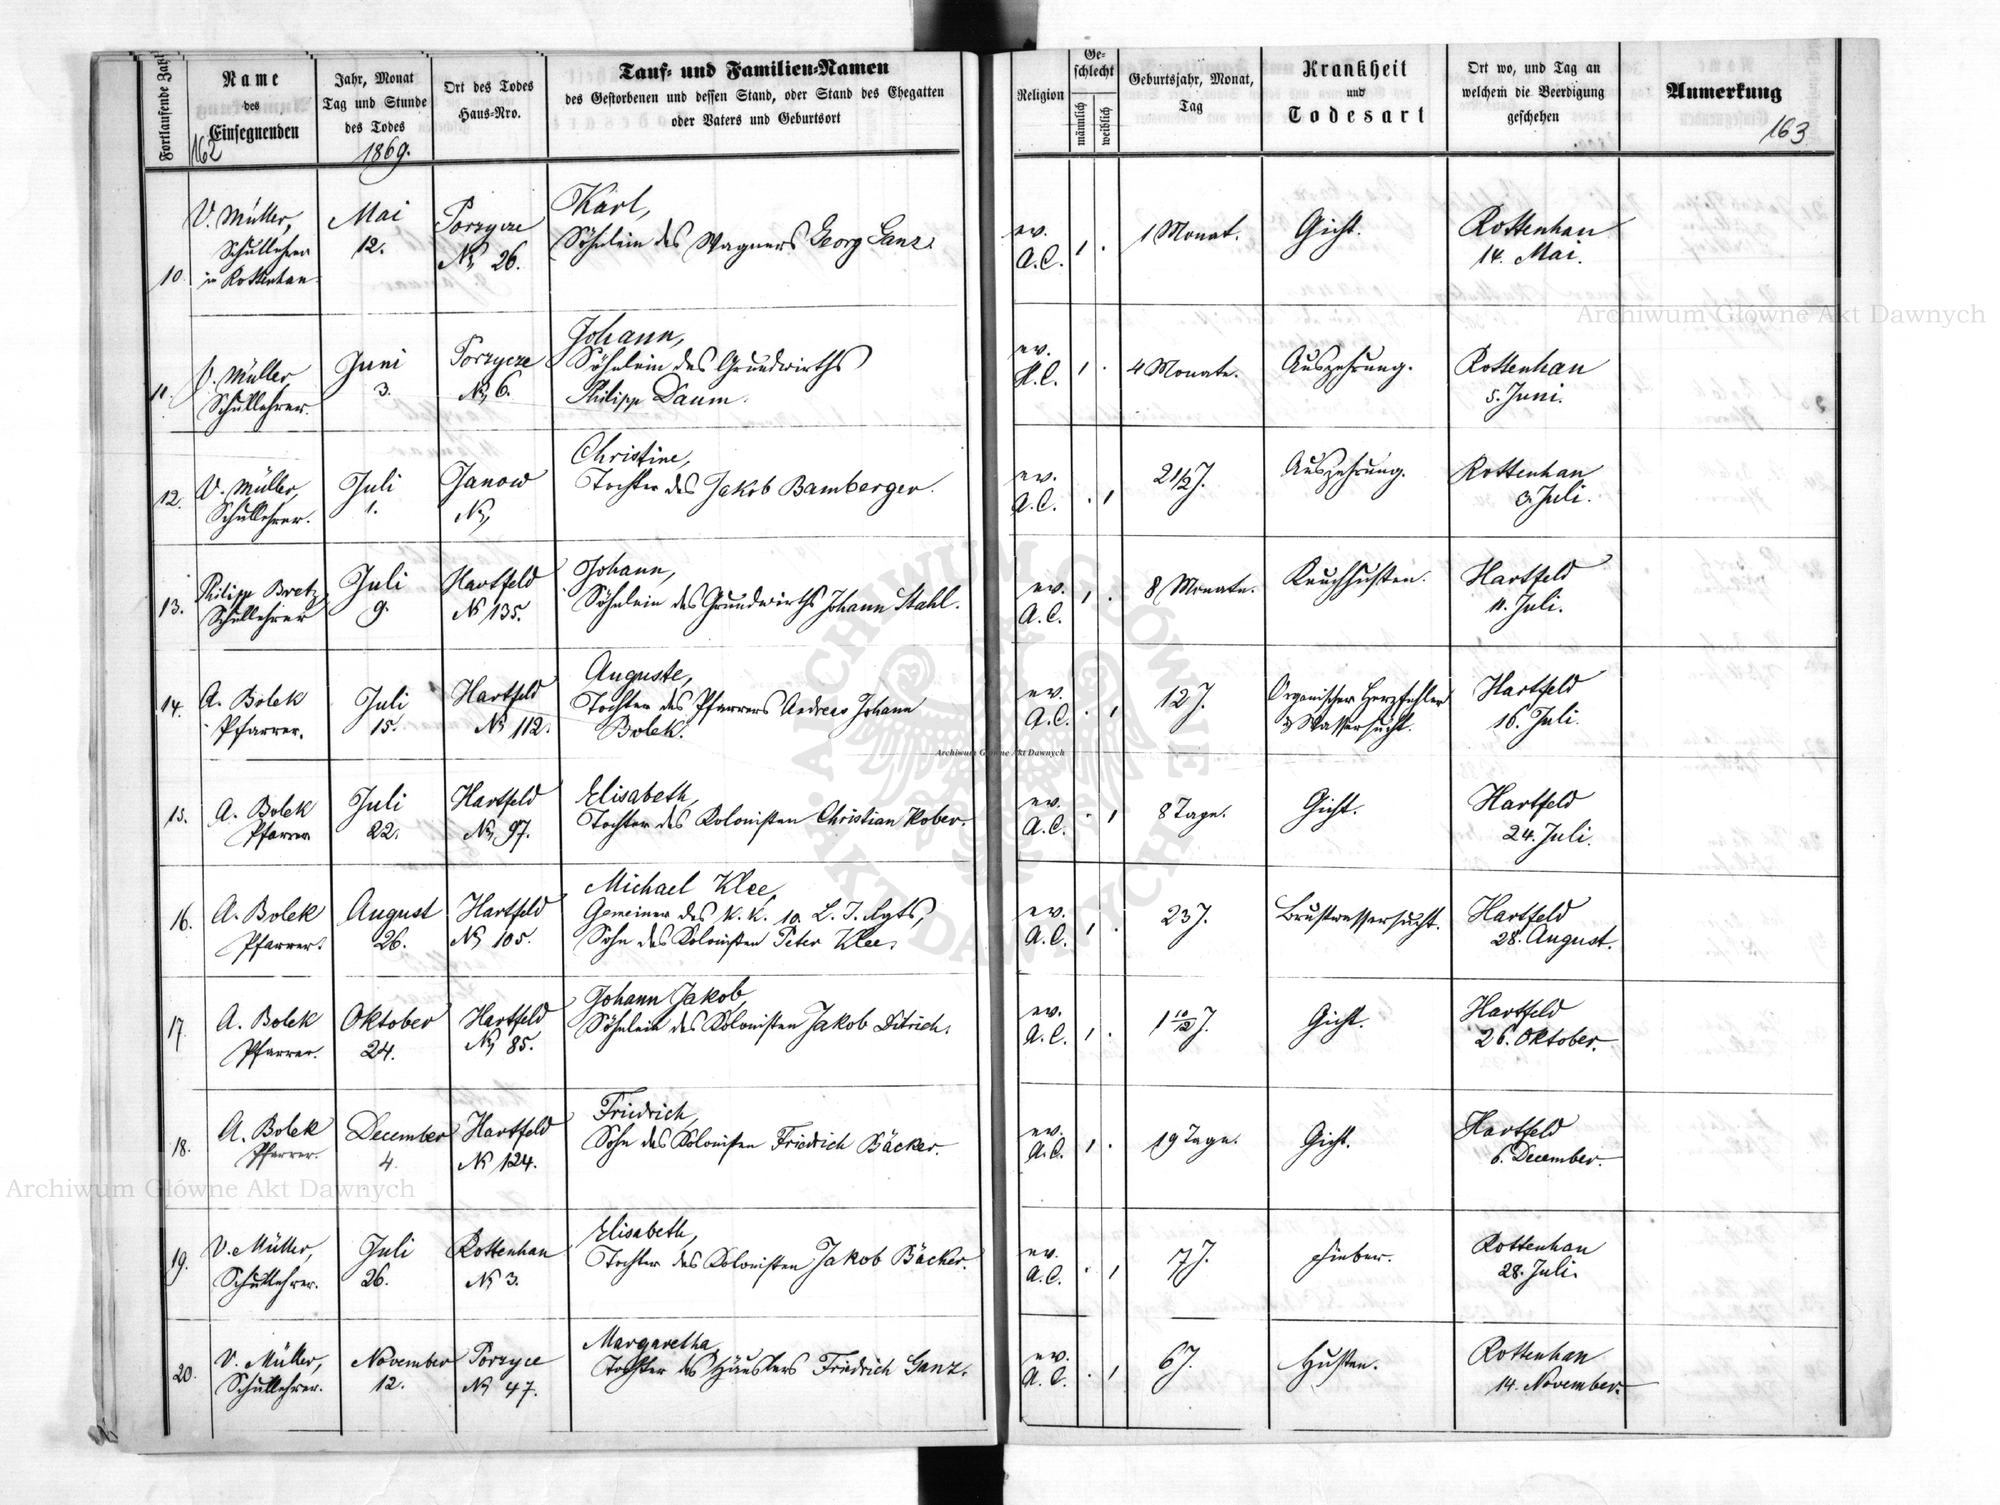 Fortlaufende Zahl
Name
des
Einsegnenden
162
Jahr, Monat
Tag und Stunde
des Todes
1869.
Ort des Todes
Haus-Nro.
Tauf- und Familien-Namen
des Gestorbenen und dessen Stand, oder Stand des Ehegatten
oder Vaters und Geburtsort
Religion
Ge-
schlecht
männlich
weiblich
Geburtsjahr, Monat,
Tag
Krankheit
und
Todesart
Ort wo, und Tag an
welchem die Beerdigung
geschehen
Anmerkung
163
10.
V. Müller,
Schullehrer
in Rottenhan.
Mai
12.
Porzycze
No 26.
Karl,
Söhnlein des Wagners Georg Ganz.
ev.
A.C.
1 .
1 Monat.
Gicht.
Rottenhan
14. Mai.
11.
V. Müller,
Schullehrer.
Juni
3.
Porzycze
No 6.
Johann,
Söhnlein des Grundwirths
Philipp Daum.
ev.
A.C.
1 .
4 Monate.
Auszehrung.
Rottenhan
5. Juni.
12.
V. Müller,
Schullehrer.
Juli
1.
Janow
No
Christine,
Tochter des Jakob Bamberger.
ev.
A.C.
. 1
2 1/2 J.
Auszehrung.
Rottenhan
3. Juli.
13.
Philipp Bretz
Schullehrer
Juli
9.
Hartfeld
No 135.
Johann,
Söhnlein des Grundwirths Johann Stahl.
ev.
A.C.
1 .
8 Monate.
Keuchhusten.
Hartfeld
11. Juli.
14.
A. Bolek
Pfarrer.
Juli
15.
Hartfeld
No 112.
Auguste,
Tochter des Pfarrers Andreas Johann
Bolek.
ev.
A.C.
. 1
12 J.
Organischer Herzfehler
& Wassersucht.
Hartfeld
16. Juli.
15.
A. Bolek
Pfarrer
Juli
22.
Hartfeld
No 97.
Elisabeth,
Tochter des Kolonisten Christian Kober.
ev.
A.C.
. 1
8 Tage.
Gicht.
Hartfeld
24. Juli.
16.
A. Bolek
Pfarrer.
August
26.
Hartfeld
No 105.
Michael Klee,
Gemeiner des K. K. 10. L. I. Rgts,
Sohn des Kolonisten Peter Klee.
ev.
A.C.
1 .
23 J.
Brustwassersucht.
Hartfeld
28. August.
17.
A. Bolek
Pfarrer.
Oktober
24.
Hartfeld
No 85.
Johann Jakob,
Söhnlein des Kolonisten Jakob Ditrich.
ev.
A.C.
1 .
1 10/12 J.
Gicht.
Hartfeld
26. Oktober.
18.
A. Bolek
Pfarrer.
December
4.
Hartfeld
No 124.
Friedrich,
Sohn des Kolonisten Friedrich Bäcker.
ev.
A.C.
1 .
19 Tage.
Gicht.
Hartfeld
6. December.
19.
V. Müller,
Schullehrer.
Juli
26.
Rottenhan
No 3.
Elisabeth,
Tochter des Kolonisten Jakob Bäcker.
ev.
A.C.
. 1
7 J.
Fieber.
Rottenhan
28. Juli.
20.
V. Müller,
Schullehrer.
November
12.
Porzyce
No 47.
Margaretha,
Tochter des Häuslers Friedrich Ganz.
ev.
A.C.
. 1
6 J.
Husten.
Rottenhan
14. November.
Archiwum Główne Akt Dawnych
Archiwum Główne Akt Dawnych
Archiwum Główne Akt Dawnych
ARCHIWUM GŁÓWNE · AKT DAWNYCH ·